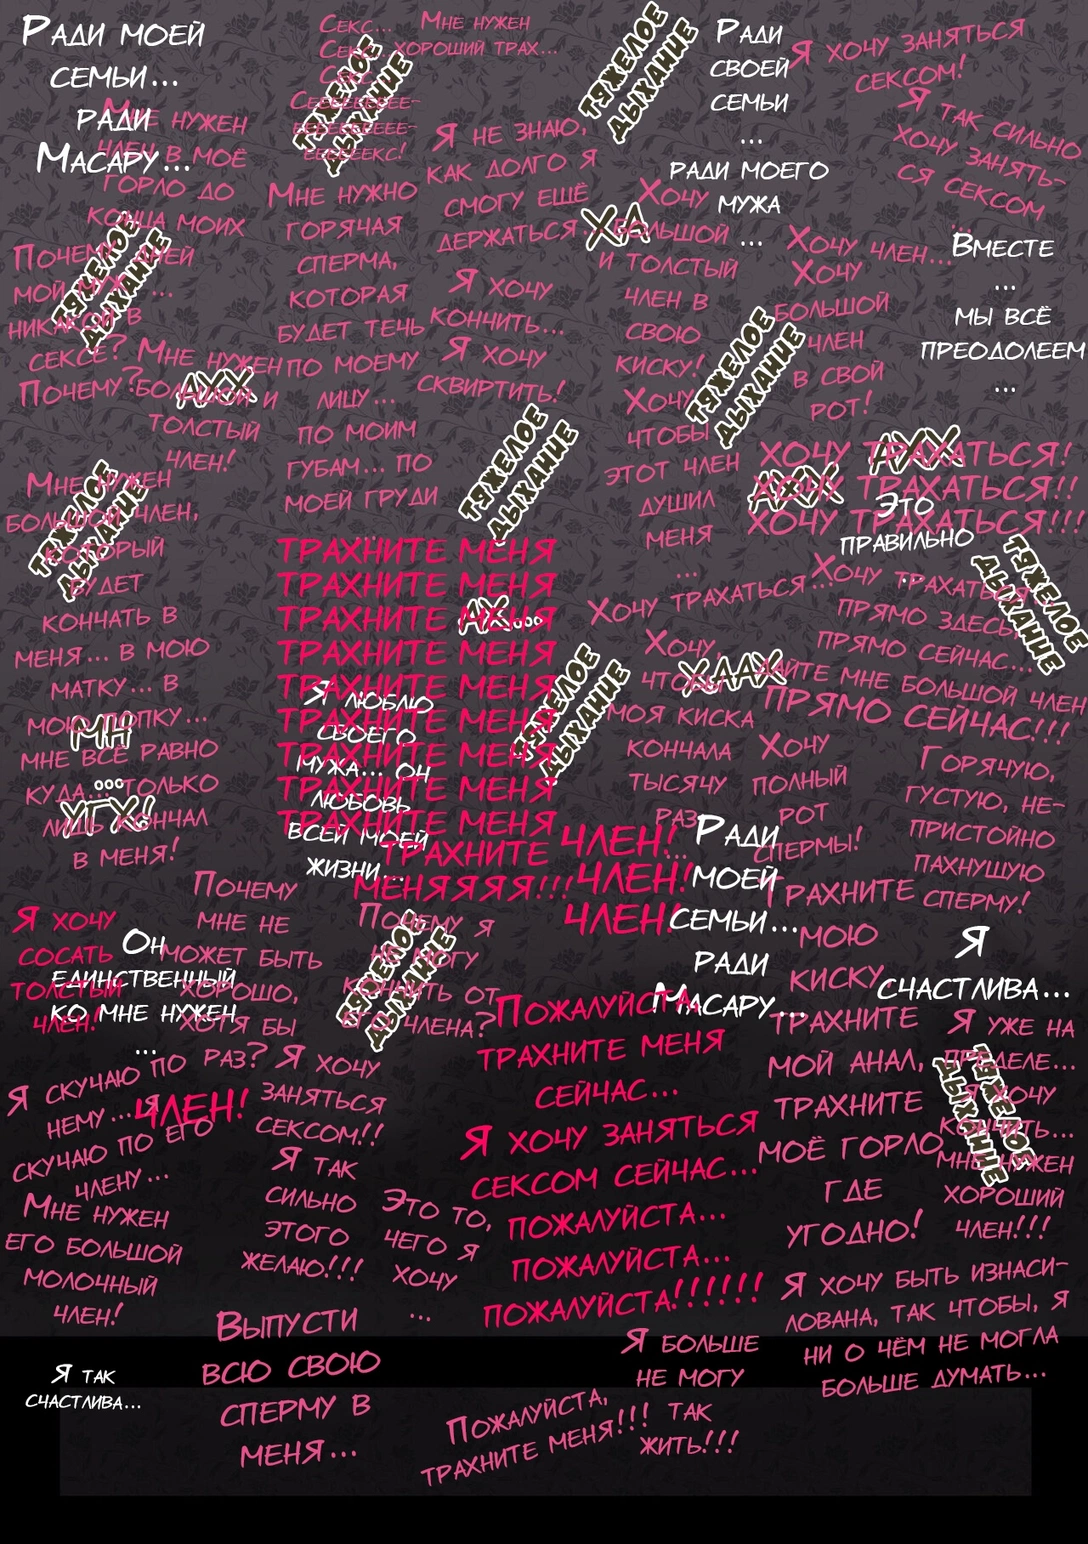 Ради моей
семьи...
ради
Масару...
Мне нужен
член в моё
горло до
конца моих
дней
...
Секс...
Секс...
Секс...
Сеееееееее-
еееееееее-
еееееекс!
Мне нужен
хороший трах...
ТЯЖЕЛОЕ
ДЫХАНИЕ
ТЯЖЕЛОЕ
ДЫХАНИЕ
Ради
своей
семьи
...
ради моего
мужа
...
Я хочу заняться
сексом!
Я так сильно
хочу занять-
ся сексом
...
Вместе
...
мы всё
преодолеем
...
Я не знаю,
как долго я
смогу ещё
держаться...
Я хочу
кончить...
Я хочу
сквиртить!
ХА
Мне нужно
горячая
сперма,
которая
будет течь
по моему
лицу...
по моим
губам... по
моей груди
...
Хочу
большой
и толстый
член в
свою
киску!
Хочу,
чтобы
этот член
душил
меня
...
Хочу член...
Хочу
большой
член
в свой
рот!
ТЯЖЕЛОЕ
ДЫХАНИЕ
Почему
мой муж
никакой в
сексе?
Почему?
ТЯЖЕЛОЕ
ДЫХАНИЕ
Мне нужен
большой и
толстый
член!
АХХ
ТЯЖЕЛОЕ
ДЫХАНИЕ
ТЯЖЕЛОЕ
ДЫХАНИЕ
ХОЧУ ТРАХАТЬСЯ!
ХОЧУ ТРАХАТЬСЯ!!
ХОЧУ ТРАХАТЬСЯ!!!
АХХ
Это
правильно
Мне нужен
большой член,
который
будет
кончать в
меня... в мою
матку... в
мою попку...
мне всё равно
куда... только
лишь кончал
в меня!
МН
...
УГХ!
ТРАХНИТЕ МЕНЯ
ТРАХНИТЕ МЕНЯ
ТРАХНИТЕ МЕНЯ
ТРАХНИТЕ МЕНЯ
ТРАХНИТЕ МЕНЯ
ТРАХНИТЕ МЕНЯ
ТРАХНИТЕ МЕНЯ
ТРАХНИТЕ МЕНЯ
ТРАХНИТЕ МЕНЯ
ТРАХНИТЕ
МЕНЯЯЯЯ!!!
АХ...
Я люблю
своего
мужа... Он
любовь
всей моей
жизни...
ТЯЖЕЛОЕ
ДЫХАНИЕ
Хочу трахаться...
Хочу,
чтобы
моя киска
кончала
тысячу
раз
...
ХААХ
Хочу трахаться
прямо здесь
прямо сейчас...
Дайте мне большой член
ПРЯМО СЕЙЧАС!!!
ТЯЖЕЛОЕ
ДЫХАНИЕ
Хочу
полный
рот
спермы!
Горячую,
густую, не-
пристойно
пахнущую
сперму!
ЧЛЕН!
ЧЛЕН!
ЧЛЕН!
Ради
моей
семьи...
ради
Масару...
Трахните
мою
киску,
трахните
мой анал,
трахните
моё горло
где
угодно!
Я
счастлива...
Почему
мне не
может быть
хорошо,
хотя бы
раз?
Я хочу
сосать
толстый
член!
Он
единственный
ко мне нужен
...
Почему я
не могу
кончить от
члена?
ТЯЖЕЛОЕ
ДЫХАНИЕ
Пожалуйста
трахните меня
сейчас...
Я хочу заняться
сексом сейчас...
пожалуйста...
пожалуйста...
пожалуйста!!!!!!
Я уже на
пределе...
Я хочу
кончить...
мне нужен
хороший
член!!!
ТЯЖЕЛОЕ
ДЫХАНИЕ
Я скучаю по
нему... я
скучаю по его
члену...
ЧЛЕН!
Мне нужен
его большой
молочный
член!
Я хочу
заняться
сексом!!
Я так
сильно
этого
желаю!!!
Это то,
чего я
хочу
...
Я хочу быть изнаси-
лована, так чтобы, я
ни о чём не могла
больше думать...
Выпусти
всю свою
сперму в
меня...
Я больше
не могу
так
жить!!!
Я так
счастлива...
Пожалуйста,
трахните меня!!!